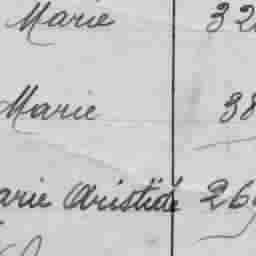 Marie 32
Marie 38
arie Aristide 26